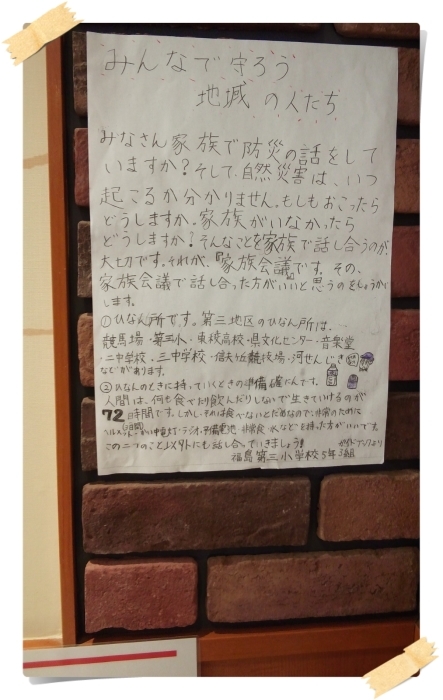 みんなで守ろう
地域の人たち
みなさん家族で防災の話をして
いますか?そして自然災害は、いつ
起こるか分かりません。もしもおこったら
どうしますか。家族がいなかったら
どうしますか?そんなことを家族で話し合うのが
大切です。それが、『家族会議』です。その、
家族会議で話し合った方がいいと思うのをしょうかい
します。
①ひなん所です。第三地区のひなん所は、
競馬場・第三小・東校高校・県文化センター・音楽堂
・二中学校・三中学校・信夫ヶ丘競技場・河せんじき
などがあります。
②ひなんのときに持っていくときの準備確にんです。
人間は、何も食べたり飲んだりしないで生きていけるのが
72時間です。しかし、それは食べないとだめなので、非常のために
(3日間)
ヘルメット・かい中電灯・ラジオ・予備電池・非常食・水などを持った方がいいです。
この二つのこと以外にも話し合っていきましょう!
福島第三小学校5年3組